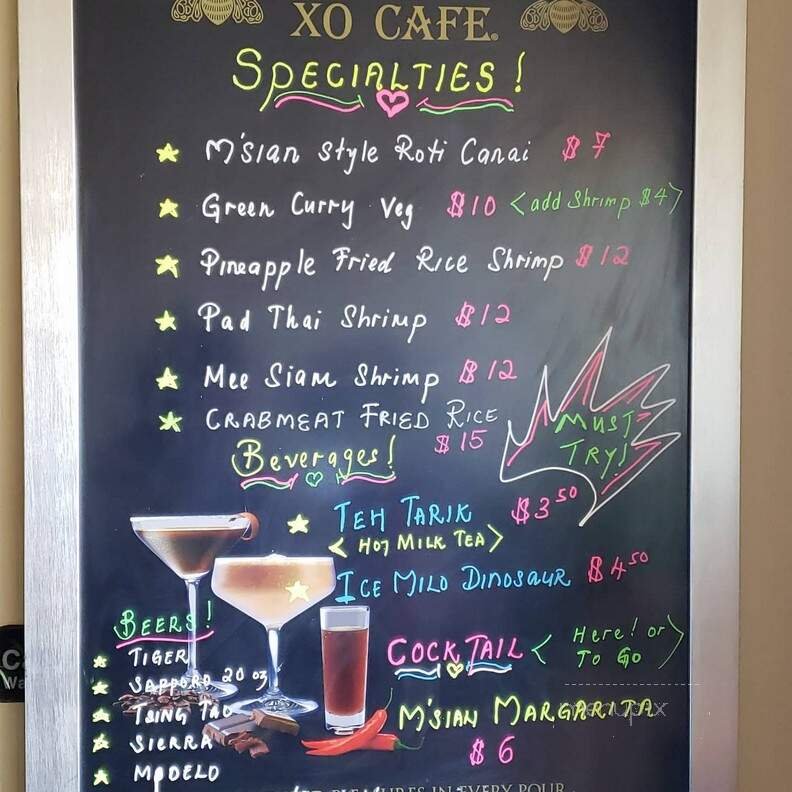 XO CAFE.
SPECIALTIES!
M'sian Style Roti Canai $7
Green Curry Veg $10 <add Shrimp $4>
Pineapple Fried Rice Shrimp $12
Pad Thai Shrimp $12
Mee Siam Shrimp $12
CRABMEAT FRIED RICE
$15
MUST
TRY!
Beverages!
TEH TARIK $3.50
<HOT MILK TEA>
ICE MILO DINOSAUR $4.50
BEERS!
TIGER
SAPPORO 20 oz
TSING TAO
SIERRA
MODELO
COCKTAIL <Here! or
To Go>
M'SIAN MARGARITA
$6
menupix
PLEASURES IN EVERY POUR